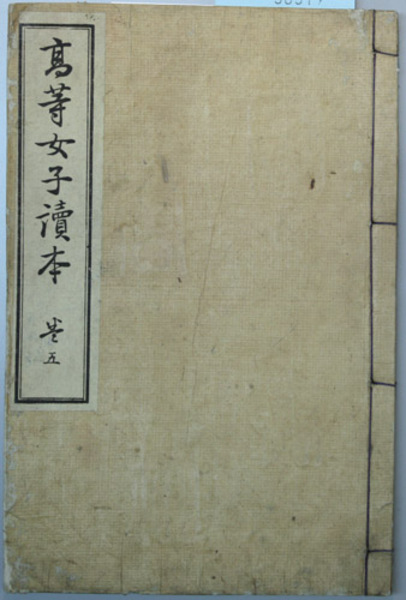 高等女子讀本
巻五